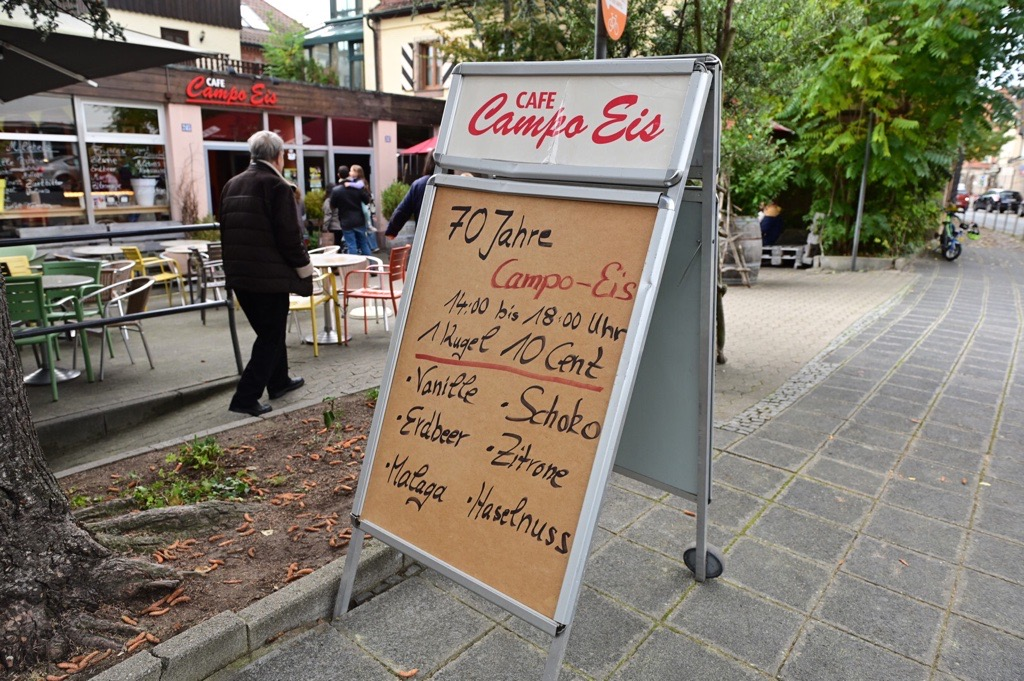 CAFE
Campo Eis
CAFE
Campo Eis
70 Jahre
Campo-Eis
14:00 bis 18:00 Uhr
1 Kugel 10 Cent
· Vanille
· Schoko
· Erdbeer
· Zitrone
· Malaga
· Haselnuss